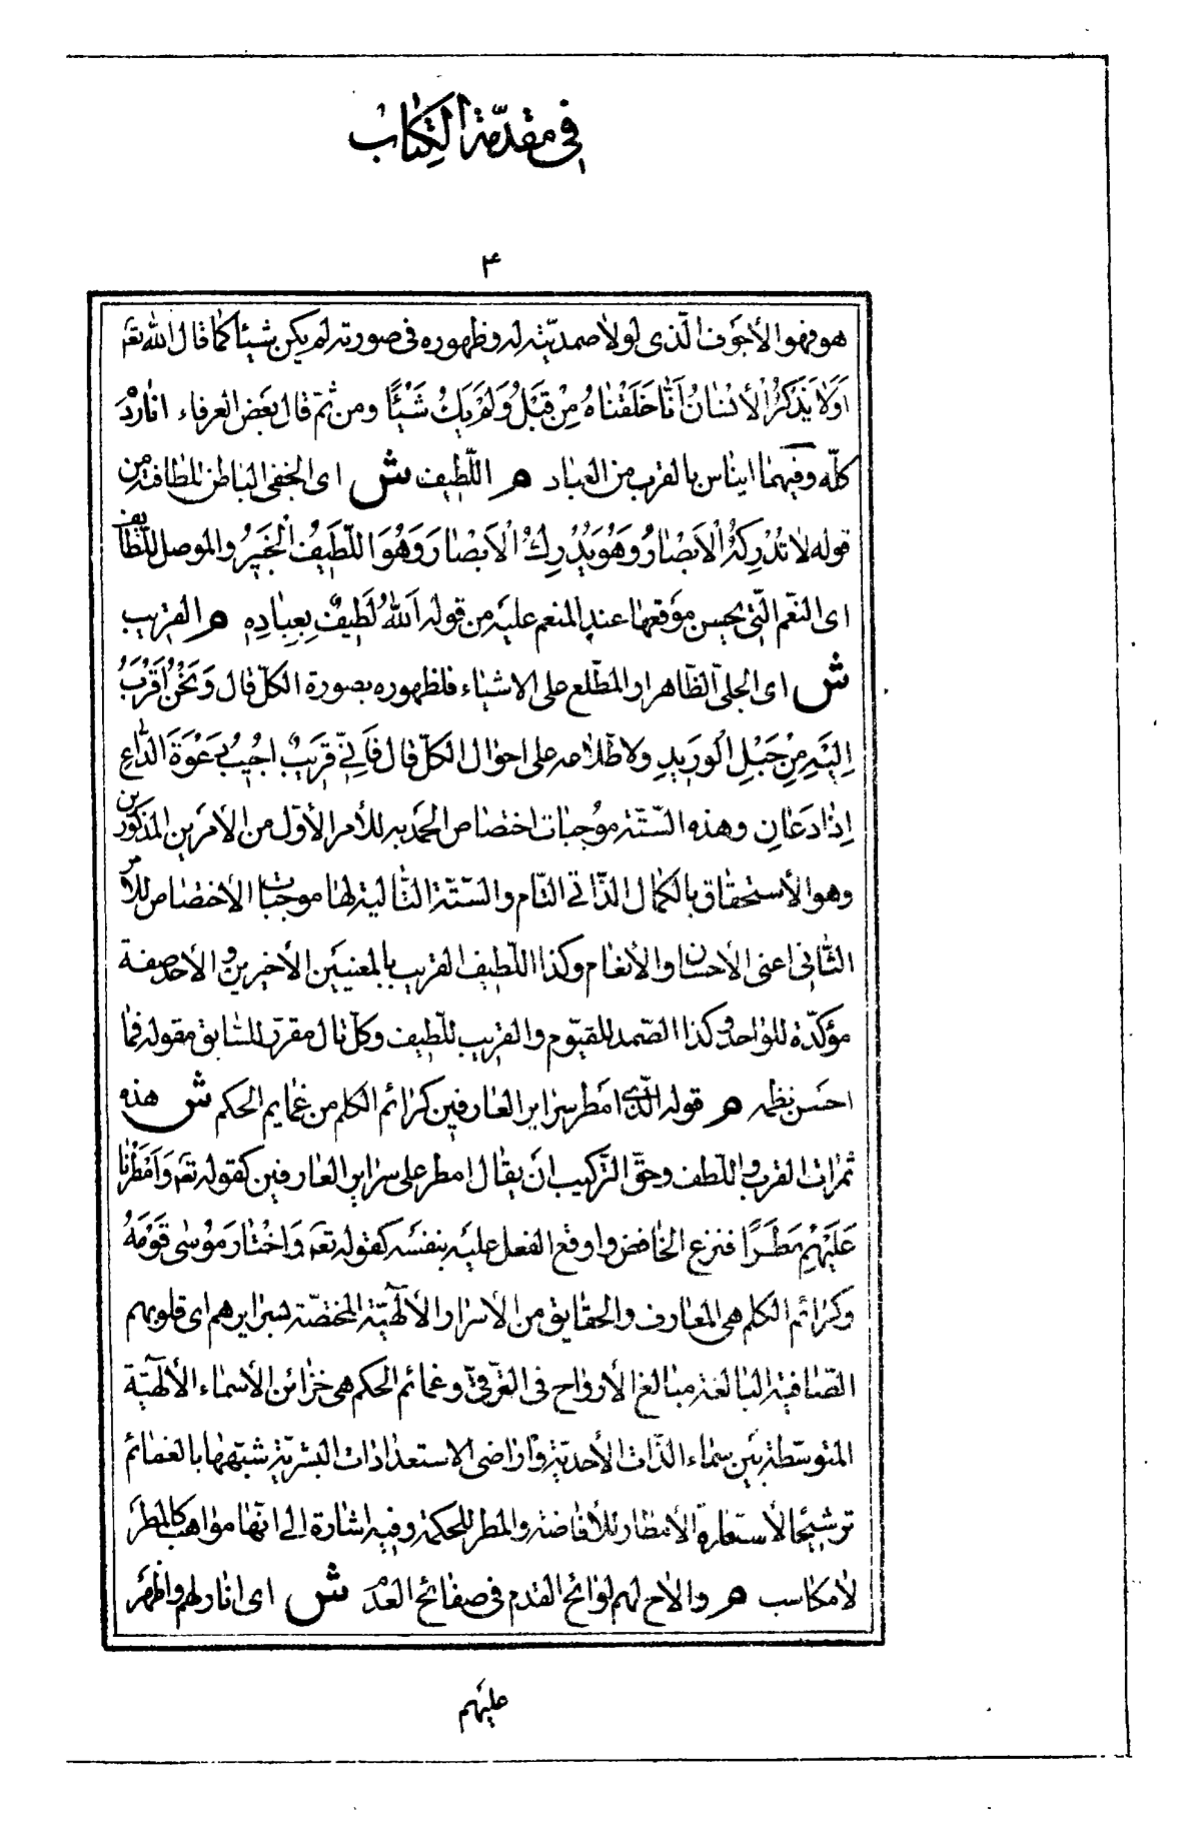 في مقدّمة الكتاب
۴
هو فهو الأجوف الّذى لولا صمديّته له وظهوره فى صورته لم يكن شيئا كما قال الله تعا
اَوَلا يَذْكُرُ الْأِنْسانُ اَنّا خَلَقْناهُ مِنْ قَبْلُ وَلَمْ يَكُ شَيْئًا ومن ثمّ قال بعض العرفاء انارد
كلّه وفيهما ايناس بالقرب من العباد م اللّطيف ش اى الخفى الباطن للطافته من
قوله لا تُدْرِكُهُ الْاَبْصارُ وَهُوَ يُدْرِكُ الْاَبْصارَ وَهُوَ اللَّطيفُ الْخَبيرُ والموصل اللّطايف
اى النعّم الّتى يحسن موقعها عند المنعم عليه من قوله اَللّهُ لَطيفٌ بِعِبادِهِ م القريب
ش اى الجلىّ الظّاهر او المطّلع على الاشياء فلظهوره بصورة الكلّ قال وَنَحْنُ اَقْرَبُ
اِلَيْهِ مِنْ حَبْلِ الْوَريدِ ولاطّلاعه على احوال الكلّ قال فَاِنّى قَريبٌ اُجيبُ دَعْوَةَ الدّاعِ
اِذا دَعانِ وهذه السّتّة موجبات اختصاص الحمد به للأمر الأوّل من الأمرين المذكورين
وهو الأستحقاق بالكمال الذّاتى التام والستّة التّالية لها موجبات الأختصاص للأمر
الثّانى اعنى الأحسان والأنعام وكذا اللّطيف القريب بالمعنيين الأخيرين والأحد صفة
مؤكّدة للواحد وكذا الصّمد للقيّوم والقريب للّطيف وكلّ تال مقرّر للسّابق مقوله فما
احسن نظمه م قوله الّذى امطر سراير العارفين كرائم الكلم من غمايم الحكم ش هذه
ثمرات القرب واللّطف وحقّ التّركيب ان يقال امطر على سراير العارفين كقوله تعا وَاَمْطَرْنا
عَلَيْهِمْ مَطَرًا فنزع الخافض واوقع الفعل عليه بنفسه كقوله تعا وَاخْتارَ مُوسى قَوْمَهُ
وكرائم الكلم هى المعارف والحقايق من الأسرار الألهيّة المختصّة بسرايرهم اى قلوبهم
الصّافية البالغة مبالغ الأرواح فى الترّقى وغمائم الحكم هى خزائن الأسماء الألهيّة
المتوسّطة بين سماء الذّات الأحديّة واراضى الاستعدادات البشريّة شبّهها بالغمائم
ترشيحا لأستعارة الأمطار للأفاضة والمطر للحكمة وفيه اشارة الى انّها مواهب كالمطر
لا مكاسب م والاح لهم لوائح القدم فى صفائح العدم ش اى انار لهم واظهر
عليهم